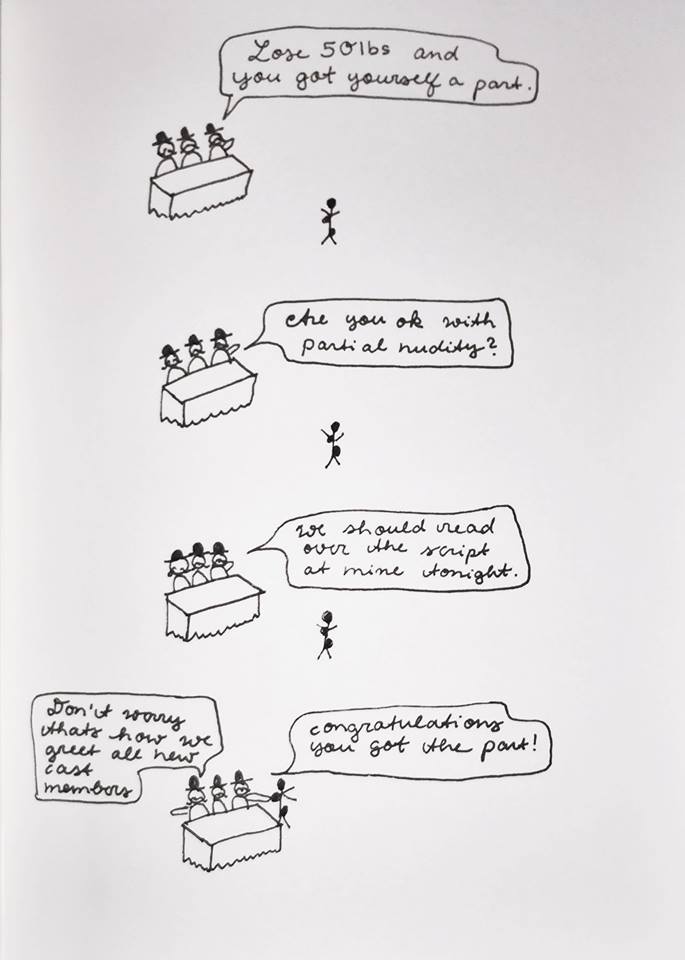 Lose 50lbs and
you got yourself a part.
Are you ok with
partial nudity?
we should read
over the script
at mine tonight.
Don't worry
thats how we
greet all new
cast
members
congratulations
you got the part!